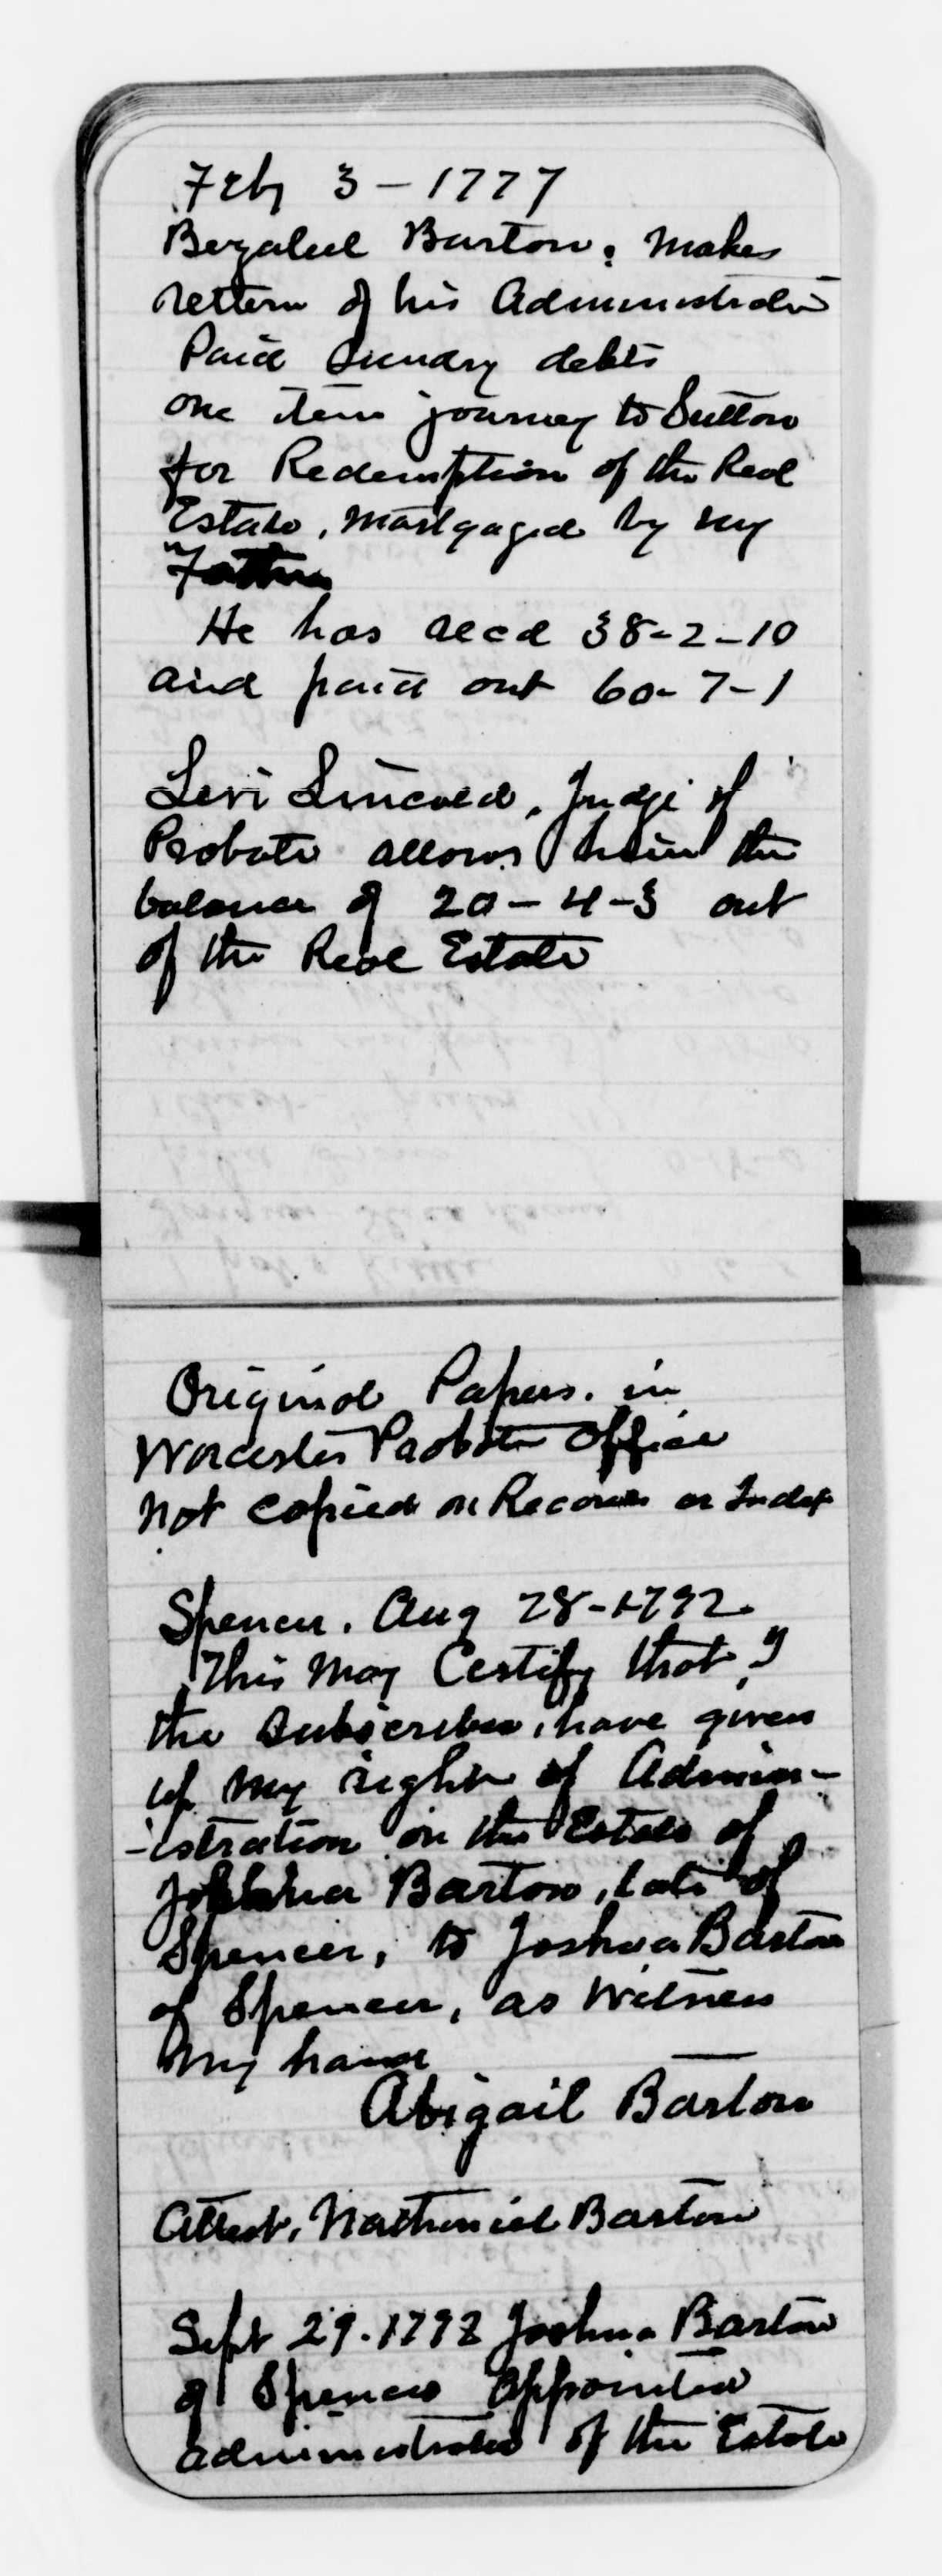 Feby 3 - 1777
Bezaleel Barton. Makes
return of his Administration
Paid Sundry debts
one item journey to Sutton
for Redemption of the Real
Estate, Mortgaged by my
"Father
He has recd 38-2-10
and paid out 60-7-1
Levi Lincoln, Judge of
Probate allows him the
balance of 20-4-3 out
of the Real Estate
Original Papers. in
Worcester Probate Office
Not copied on Records or Index
Spencer. Aug 28-1792.
This May Certify that I
the Subscriber, have given
up my right of Admin-
-istration on the Estate of
Joshua Barton, late of
Spencer, to Joshua Barton
of Spencer, as Witness
My hand
Abigail Barton
Attest, Nathaniel Barton
Sept 29. 1792 Joshua Barton
of Spencer Appointed
administrator of the Estate